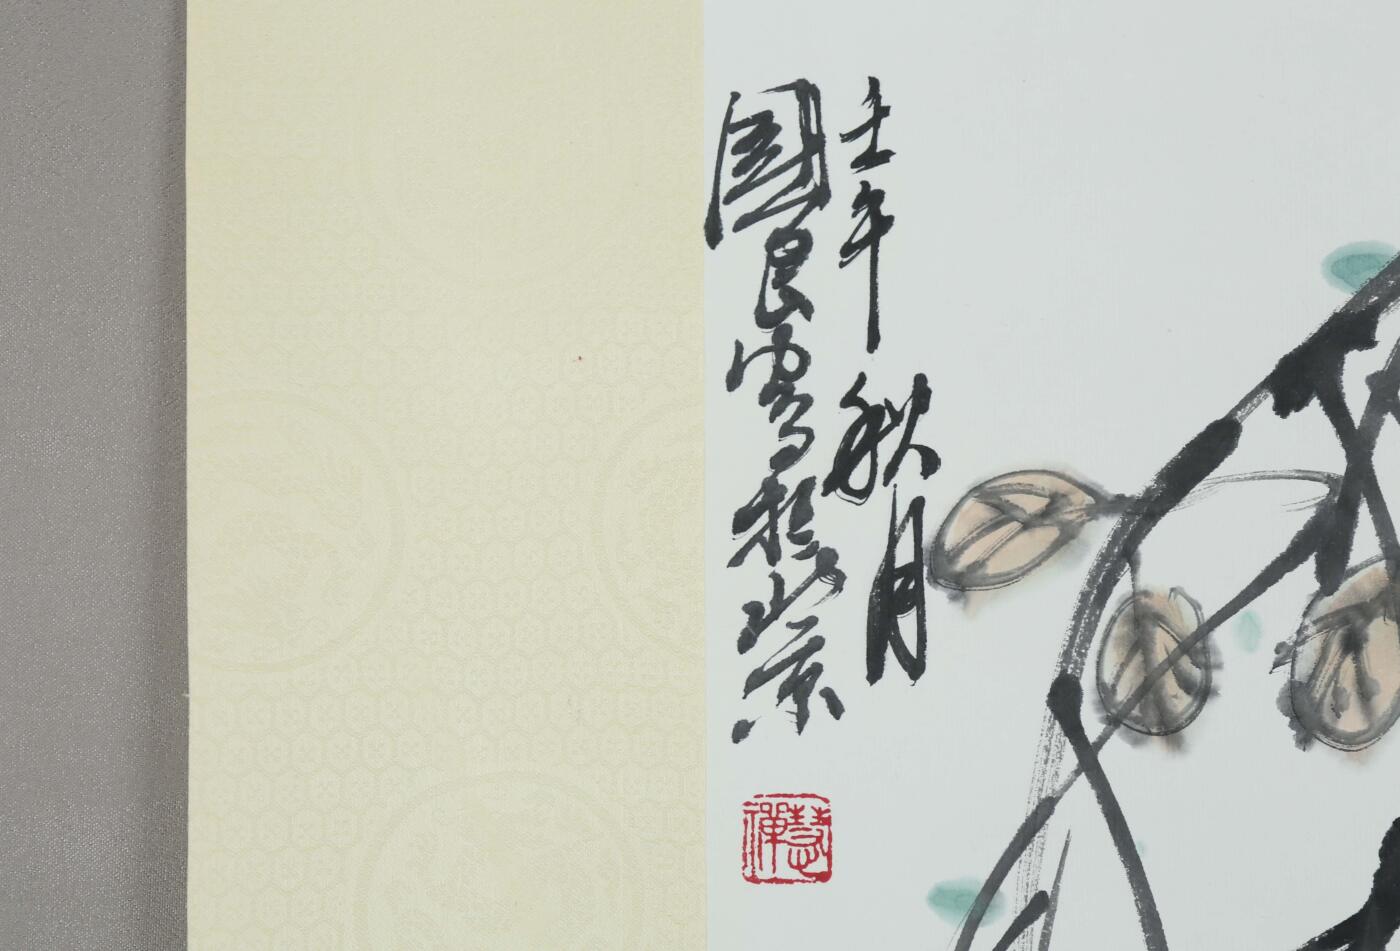 壬午秋月
國良寫於北京
慧禪